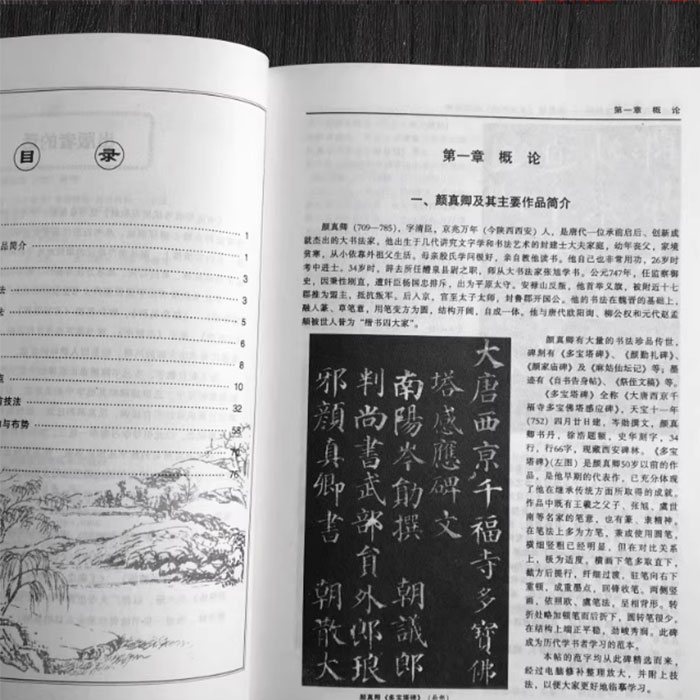 目 录
1
品简介 1
3
法 3
法 5
6
8
点 10
首技法 32
构与布势 58
75
76
第一章 概 论
第一章 概 论
一、颜真卿及其主要作品简介
颜真卿(709—785),字清臣,京兆万年(今陕西西安)人,是唐代一位承前启后、创新成
就杰出的大书法家。他出生于几代讲究文字学和书法艺术的封建士大夫家庭,幼年丧父,家境
贫寒,从小依靠外祖父生活。母亲殷氏学问很好,亲自教他读书。他自己也非常用功,26岁时
考中进士。34岁时,辞去所任醴泉县尉之职,师从大书法家张旭学书。公元747年,任监察御
史,因秉性刚直,遭奸臣杨国忠排斥,出为平原太守。安禄山反叛,他首举义旗,被附近十七
郡推为盟主,抵抗叛军。后入京,官至太子太师,封鲁郡开国公。他的书法在魏晋的基础上,
融入篆、草笔意,用笔变方为圆,结构开阔,自成一体。他与唐代欧阳询、柳公权和元代赵孟
頫被世人誉为“楷书四大家”。
大唐西京千福寺多寶佛
塔感應碑文
南陽岑勛撰 朝議郎
判尚書武部員外郎琅
邪顏真卿書 朝散大
颜真卿《多宝塔碑》
颜真卿有大量的书法珍品传世,
碑刻有《多宝塔碑》、《颜勤礼碑》、
《颜家庙碑》及《麻姑仙坛记》等;墨
迹有《自书告身帖》、《祭侄文稿》等。
《多宝塔碑》全称《大唐西京千
福寺多宝佛塔感应碑》,天宝十一年
(752)四月廿日建,岑勋撰文,颜真
卿书丹,徐浩题额,史华刻字,34
行,行66字,现藏西安碑林。《多宝
塔碑》(左图)是颜真卿50岁以前的作
品,是他早期的代表作,已充分体现
了他在继承传统方面所取得的成就,
作品中既有王羲之父子、张旭、虞世
南等名家的笔意,也有篆、隶精神。
在笔法上多为方笔,兼或使用圆笔,
横细竖粗已经明显,但在对比关系
上,极为适度,横画下笔多取直下,
截方后提行,纤细过渡,驻笔向右下
重顿,成重墨点,回锋收笔,两侧竖
画,依照欧、虞笔法,呈相背形,转
折处略加顿笔而后折下,圆转笔很少,
在结构上端正平稳,劲峻秀润。此碑
成为历代学书者学习的范本。
本帖的范字均从此碑精选而来,
经过电脑修补整理放大,并附上技
法,以便大家更好地临摹学习。